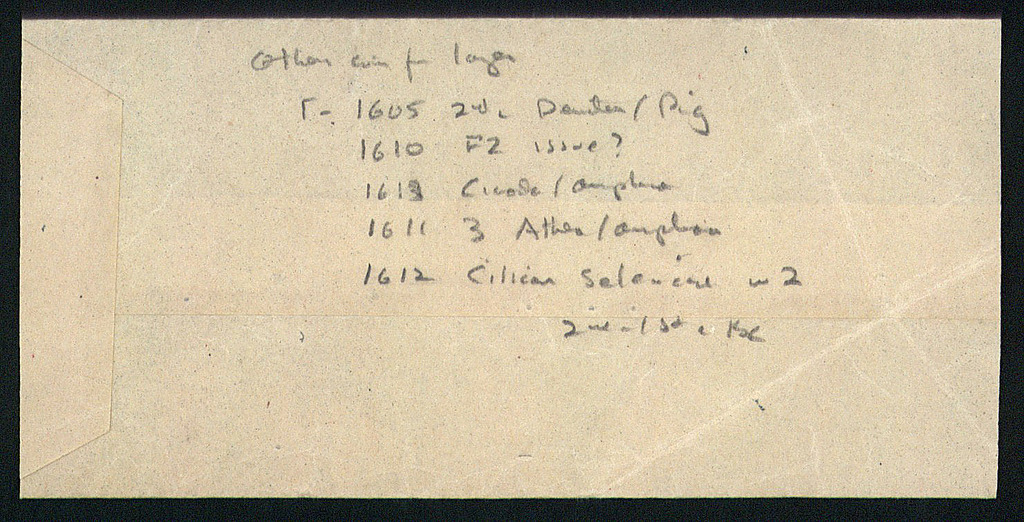 Other coin fr layer
Γ- 1605 2nd c Demeter/Pig
1610 F2 issue?
1613 Cicada/amphora
1611 3 Athena/amphora
1612 Cilician Seleucia
2nd-1st c BC